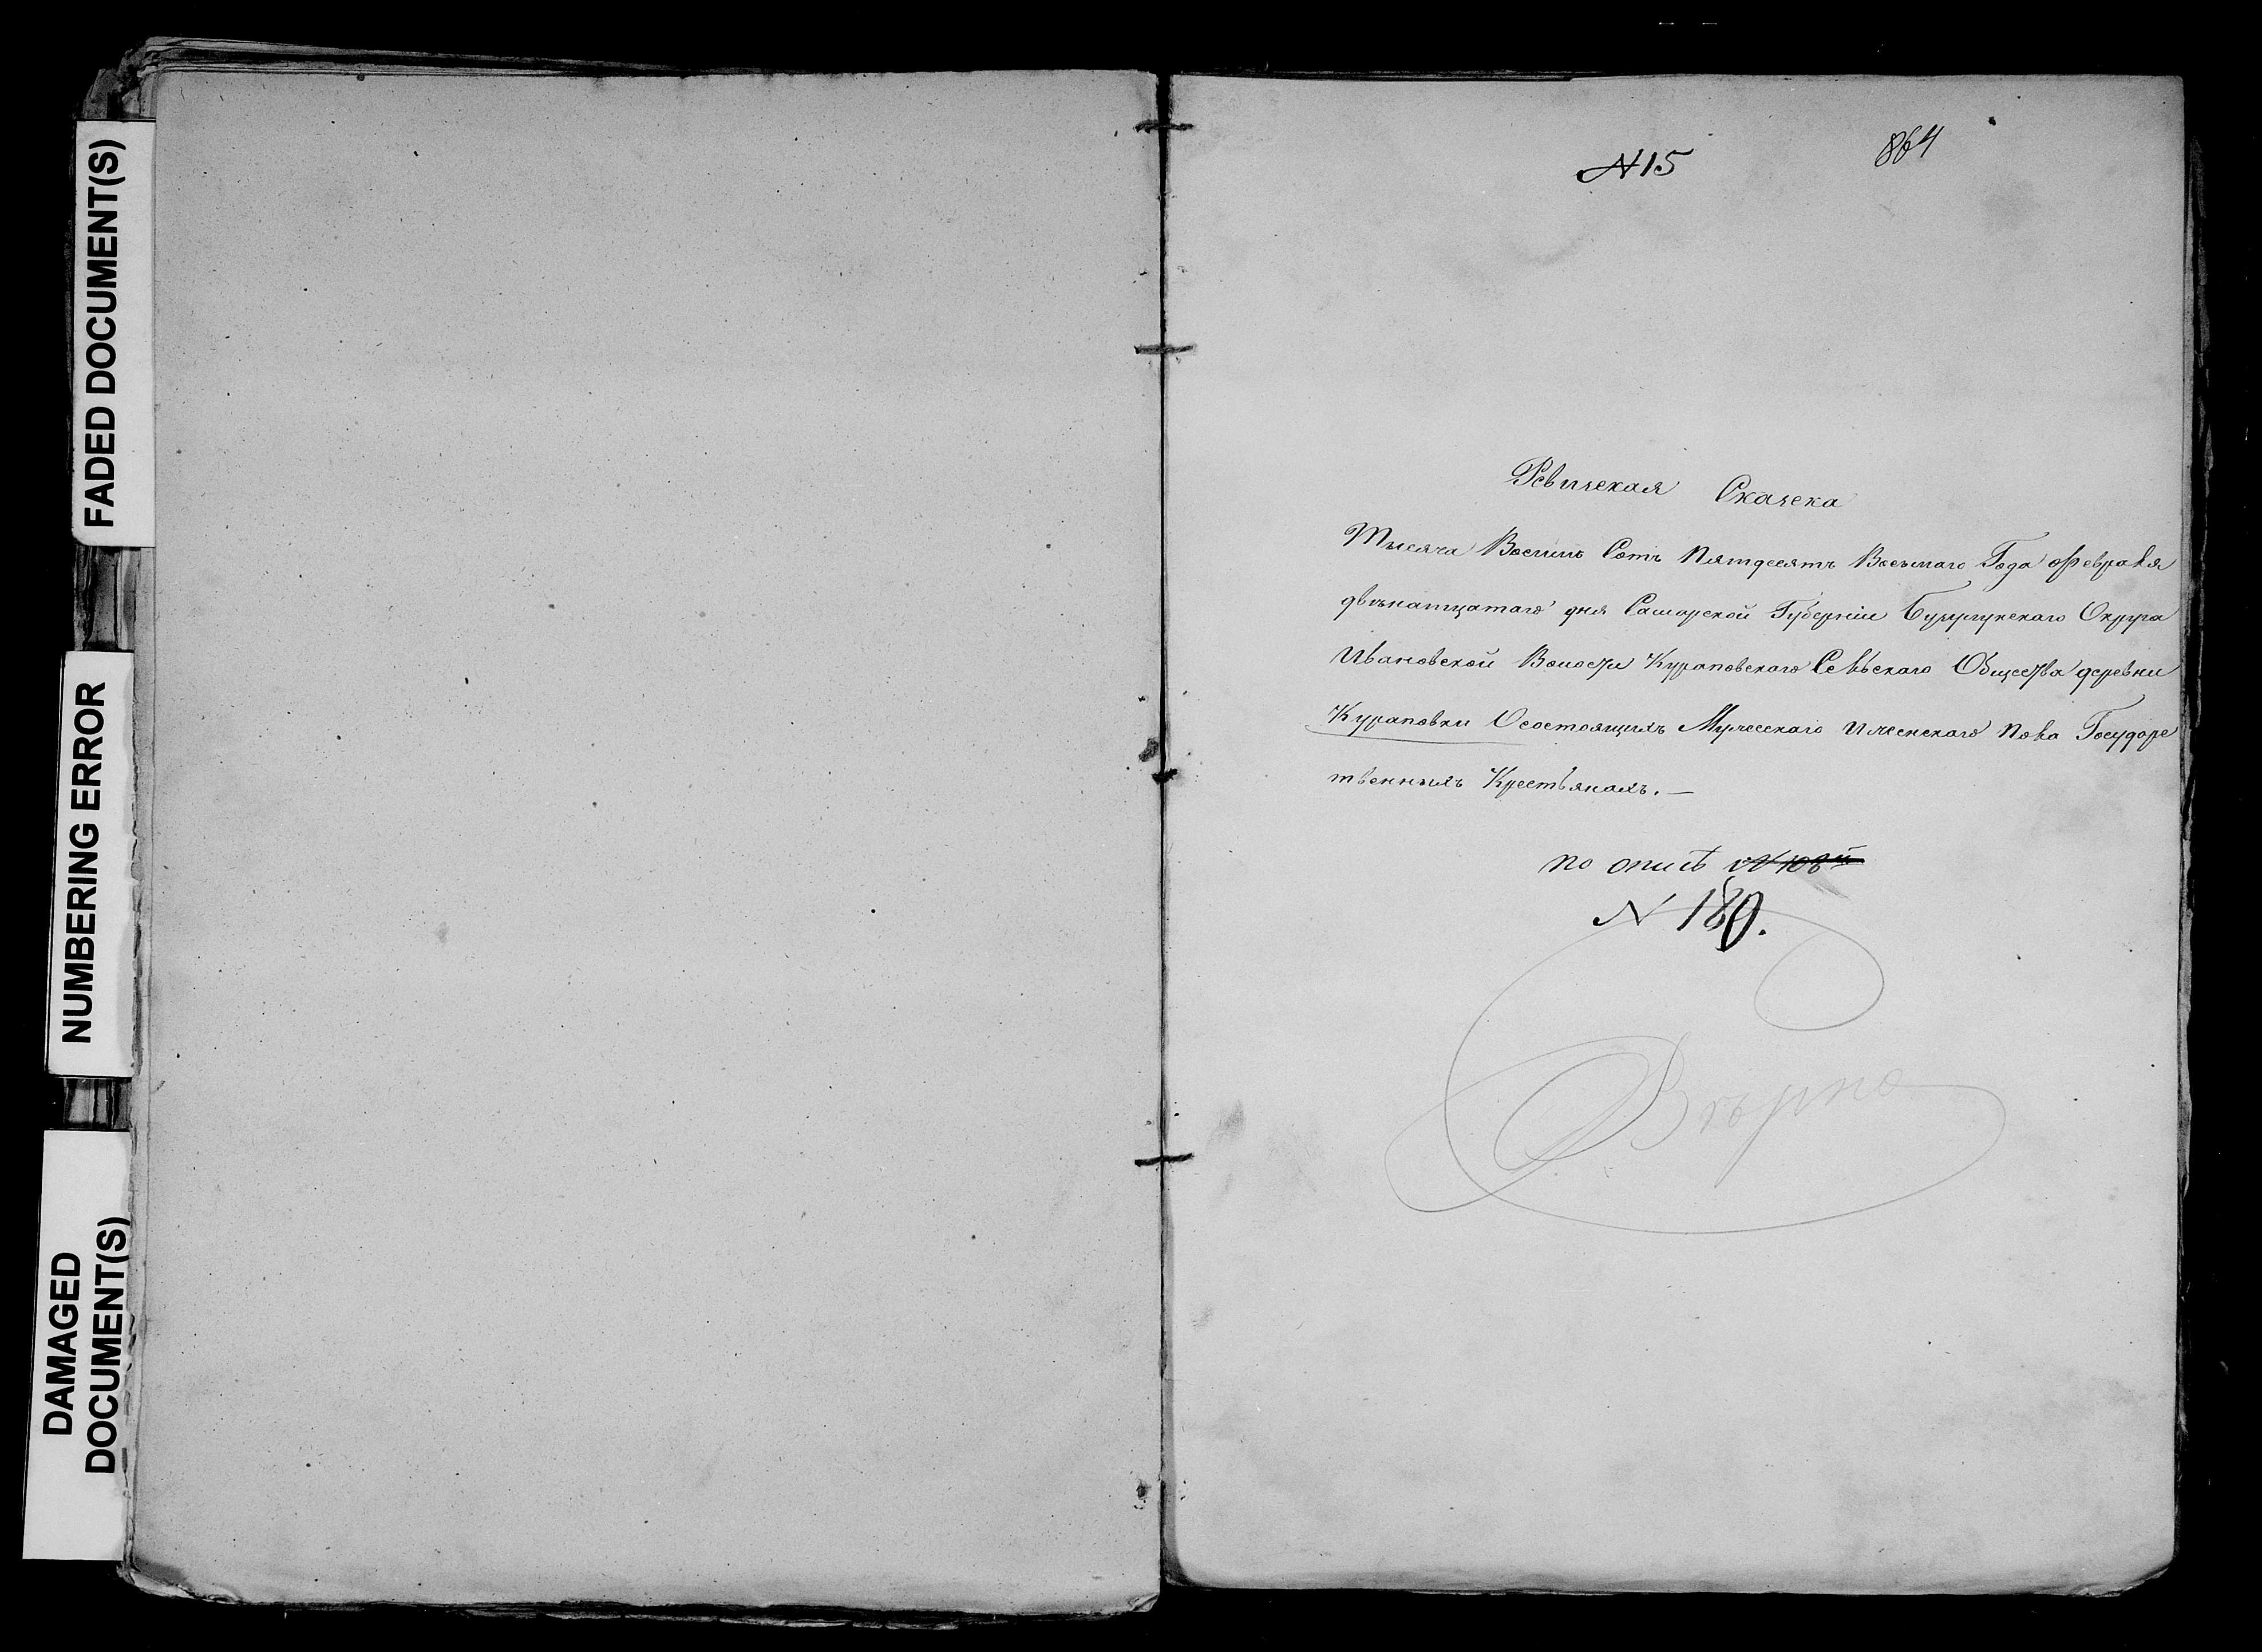 FADED DOCUMENT(S)
NUMBERING ERROR
DAMAGED
DOCUMENT(S)
N 15
864
Ревизская Сказска
Тысяча Восемь Сотъ Пятдесятъ Восьмаго Года февраля
двѣнатцатаго дня Самарской Губерніи Бузулукскаго Округа
Ивановской Волости Кураповскаго Сельскаго Общества деревни
Кураповки Осостоящихъ Мужескаго иженскаго пола Государс
твенныхъ Крестьянахъ. —
по описѣ
N 180.
Вѣрно